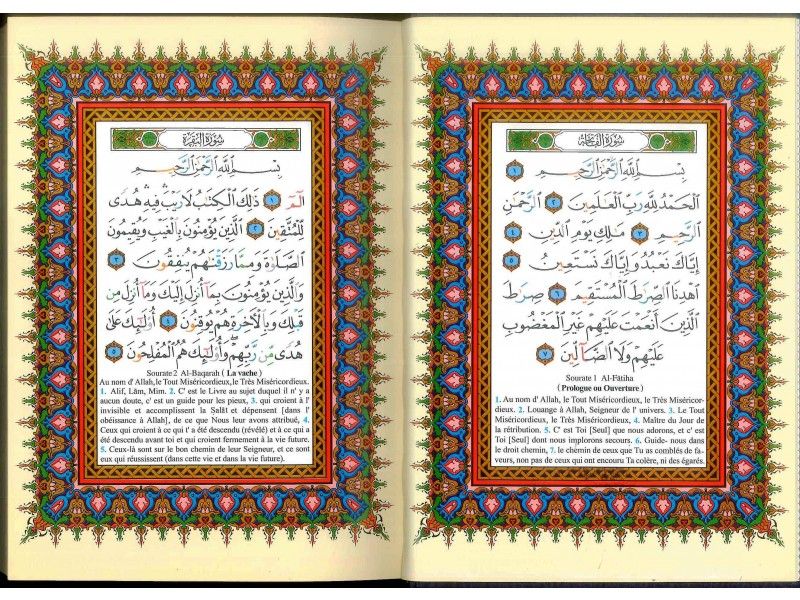 سورة الفاتحة
بِسْمِ ٱللَّهِ ٱلرَّحْمَٰنِ ٱلرَّحِيمِ ١
ٱلْحَمْدُ لِلَّهِ رَبِّ ٱلْعَٰلَمِينَ ٢ ٱلرَّحْمَٰنِ
ٱلرَّحِيمِ ٣ مَٰلِكِ يَوْمِ ٱلدِّينِ ٤
إِيَّاكَ نَعْبُدُ وَإِيَّاكَ نَسْتَعِينُ ٥
ٱهْدِنَا ٱلصِّرَٰطَ ٱلْمُسْتَقِيمَ ٦ صِرَٰطَ
ٱلَّذِينَ أَنْعَمْتَ عَلَيْهِمْ غَيْرِ ٱلْمَغْضُوبِ
عَلَيْهِمْ وَلَا ٱلضَّآلِّينَ ٧
Sourate 1 Al-Fātiha
( Prologue ou Ouverture )
1. Au nom d' Allah, le Tout Miséricordieux, le Très Miséricor-
dieux. 2. Louange à Allah, Seigneur de l' univers. 3. Le Tout
Miséricordieux, le Très Miséricordieux, 4. Maître du Jour de
la rétribution. 5. C' est Toi [Seul] que nous adorons, et c' est
Toi [Seul] dont nous implorons secours. 6. Guide- nous dans
le droit chemin, 7. le chemin de ceux que Tu as comblés de fa-
veurs, non pas de ceux qui ont encouru Ta colère, ni des égarés.
سورة البقرة
بِسْمِ ٱللَّهِ ٱلرَّحْمَٰنِ ٱلرَّحِيمِ
الٓمٓ ١ ذَٰلِكَ ٱلْكِتَٰبُ لَا رَيْبَ ۛ فِيهِ ۛ هُدًى
لِّلْمُتَّقِينَ ٢ ٱلَّذِينَ يُؤْمِنُونَ بِٱلْغَيْبِ وَيُقِيمُونَ
ٱلصَّلَوٰةَ وَمِمَّا رَزَقْنَٰهُمْ يُنفِقُونَ ٣
وَٱلَّذِينَ يُؤْمِنُونَ بِمَآ أُنزِلَ إِلَيْكَ وَمَآ أُنزِلَ مِن
قَبْلِكَ وَبِٱلْءَاخِرَةِ هُمْ يُوقِنُونَ ٤ أُو۟لَٰٓئِكَ عَلَىٰ
هُدًى مِّن رَّبِّهِمْ ۖ وَأُو۟لَٰٓئِكَ هُمُ ٱلْمُفْلِحُونَ ٥
Sourate 2 Al-Baqarah ( La vache )
Au nom d' Allah, le Tout Miséricordieux, le Très Miséricordieux.
1. Alif, Lām, Mim. 2. C' est le Livre au sujet duquel il n' y a
aucun doute, c' est un guide pour les pieux, 3. qui croient à l'
invisible et accomplissent la Salāt et dépensent [dans l'
obéissance à Allah], de ce que Nous leur avons attribué, 4.
Ceux qui croient à ce qui l' a été descendu (révélé) et à ce qui a
été descendu avant toi et qui croient fermement à la vie future.
5. Ceux-là sont sur le bon chemin de leur Seigneur, et ce sont
eux qui réussissent (dans cette vie et dans la vie future).